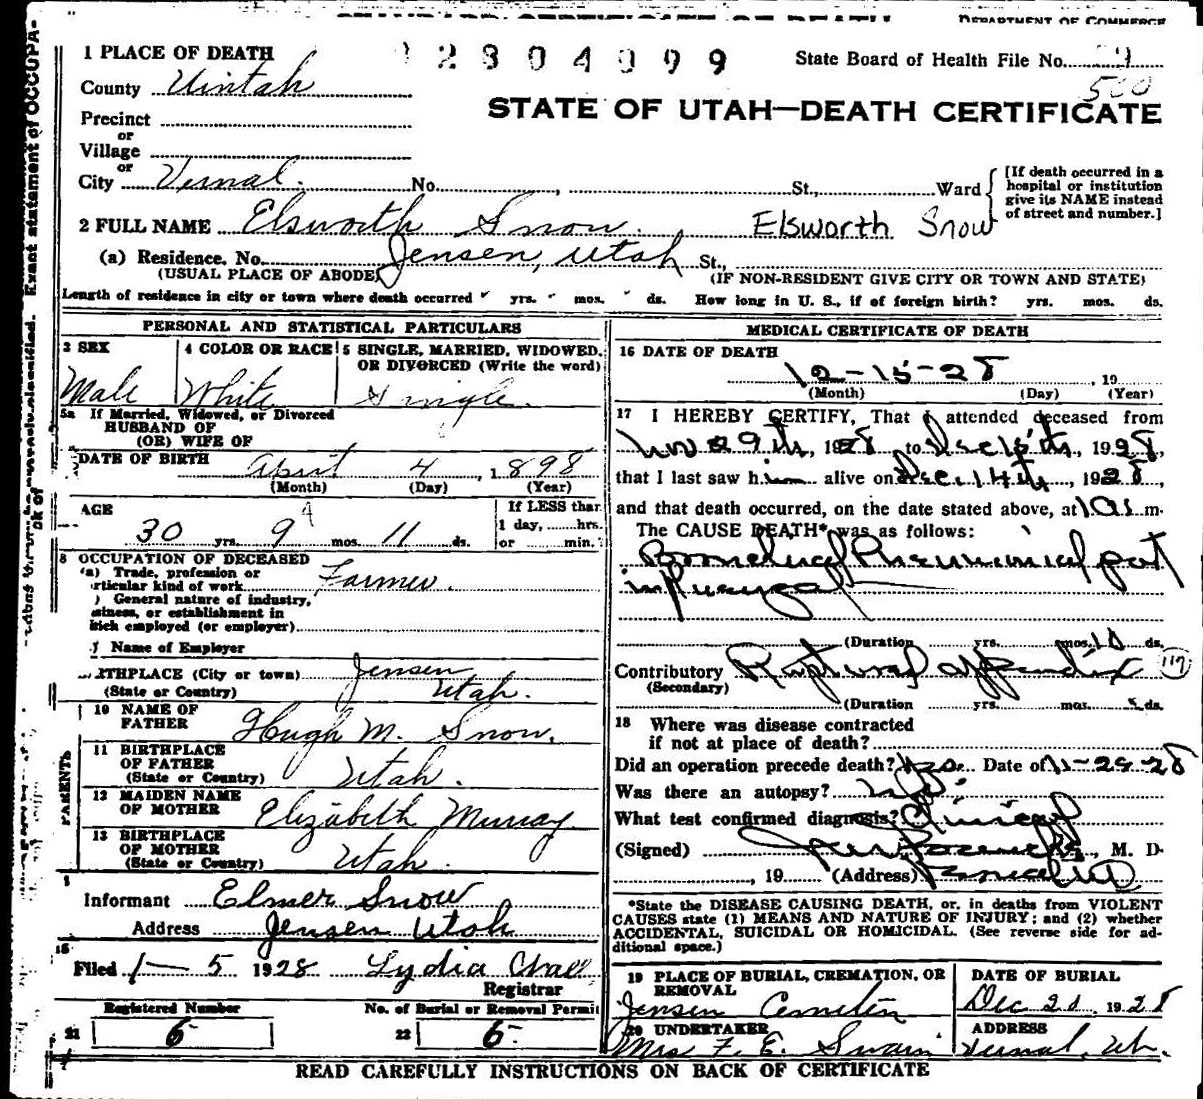 DEPARTMENT OF COMMERCE
1 PLACE OF DEATH
State Board of Health File No.
County Uintah
500
STATE OF UTAH—DEATH CERTIFICATE
Precinct
or
Village
or
City Vernal. No. , St., Ward
[If death occurred in a
hospital or institution
give its NAME instead
of street and number.]
2 FULL NAME Elsworth Snow. Elsworth Snow
(a) Residence. No. Jensen, Utah St.,
(USUAL PLACE OF ABODE) (IF NON-RESIDENT GIVE CITY OR TOWN AND STATE)
Length of residence in city or town where death occurred yrs. mos. ds. How long in U. S., if of foreign birth? yrs. mos. ds.
PERSONAL AND STATISTICAL PARTICULARS
3 SEX
Male
4 COLOR OR RACE
White
5 SINGLE, MARRIED, WIDOWED,
OR DIVORCED (Write the word)
Single.
5a If Married, Widowed, or Divorced
HUSBAND OF
(OR) WIFE OF
DATE OF BIRTH April 4, 1898
(Month) (Day) (Year)
AGE
30 yrs. 9 mos. 11 ds.
If LESS than
1 day, hrs.
or min.
8 OCCUPATION OF DECEASED
(a) Trade, profession or
particular kind of work Farmer.
General nature of industry,
business, or establishment in
which employed (or employer)
Name of Employer
BIRTHPLACE (City or town) Jensen
(State or Country) Utah.
10 NAME OF
FATHER Hugh M. Snow.
PARENTS
11 BIRTHPLACE
OF FATHER
(State or Country) Utah.
12 MAIDEN NAME
OF MOTHER Elizabeth Murray
13 BIRTHPLACE
OF MOTHER
(State or Country) Utah.
Informant Elmer Snow
Address Jensen Utah
15
Filed 1-5 1928 Lydia
Registrar
Registered Number
21 6
No. of Burial or Removal Permit
22 6
MEDICAL CERTIFICATE OF DEATH
16 DATE OF DEATH
12-15-28, 19
(Month) (Day) (Year)
17 I HEREBY CERTIFY, That I attended deceased from
Nov 29th, 1928, to Dec 15th, 1928,
that I last saw him alive on Dec. 14th, 1928,
and that death occurred, on the date stated above, at m.
The CAUSE DEATH* was as follows:
Bronchial Pneumonia post
influenza
(Duration yrs. mos. 10 ds.
Contributory Ruptured appendix 117
(Secondary)
(Duration yrs. mos. ds.
18 Where was disease contracted
if not at place of death?
Did an operation precede death? Date of 11-29-28
Was there an autopsy? No
What test confirmed diagnosis? Clinical
(Signed) M. D.
, 19 (Address)
*State the DISEASE CAUSING DEATH, or, in deaths from VIOLENT
CAUSES state (1) MEANS AND NATURE OF INJURY; and (2) whether
ACCIDENTAL, SUICIDAL OR HOMICIDAL. (See reverse side for ad-
ditional space.)
19 PLACE OF BURIAL, CREMATION, OR
REMOVAL
Jensen
DATE OF BURIAL
Dec 1928
20 UNDERTAKER
Mrs F. E. Swain
ADDRESS
Vernal, Ut.
READ CAREFULLY INSTRUCTIONS ON BACK OF CERTIFICATE